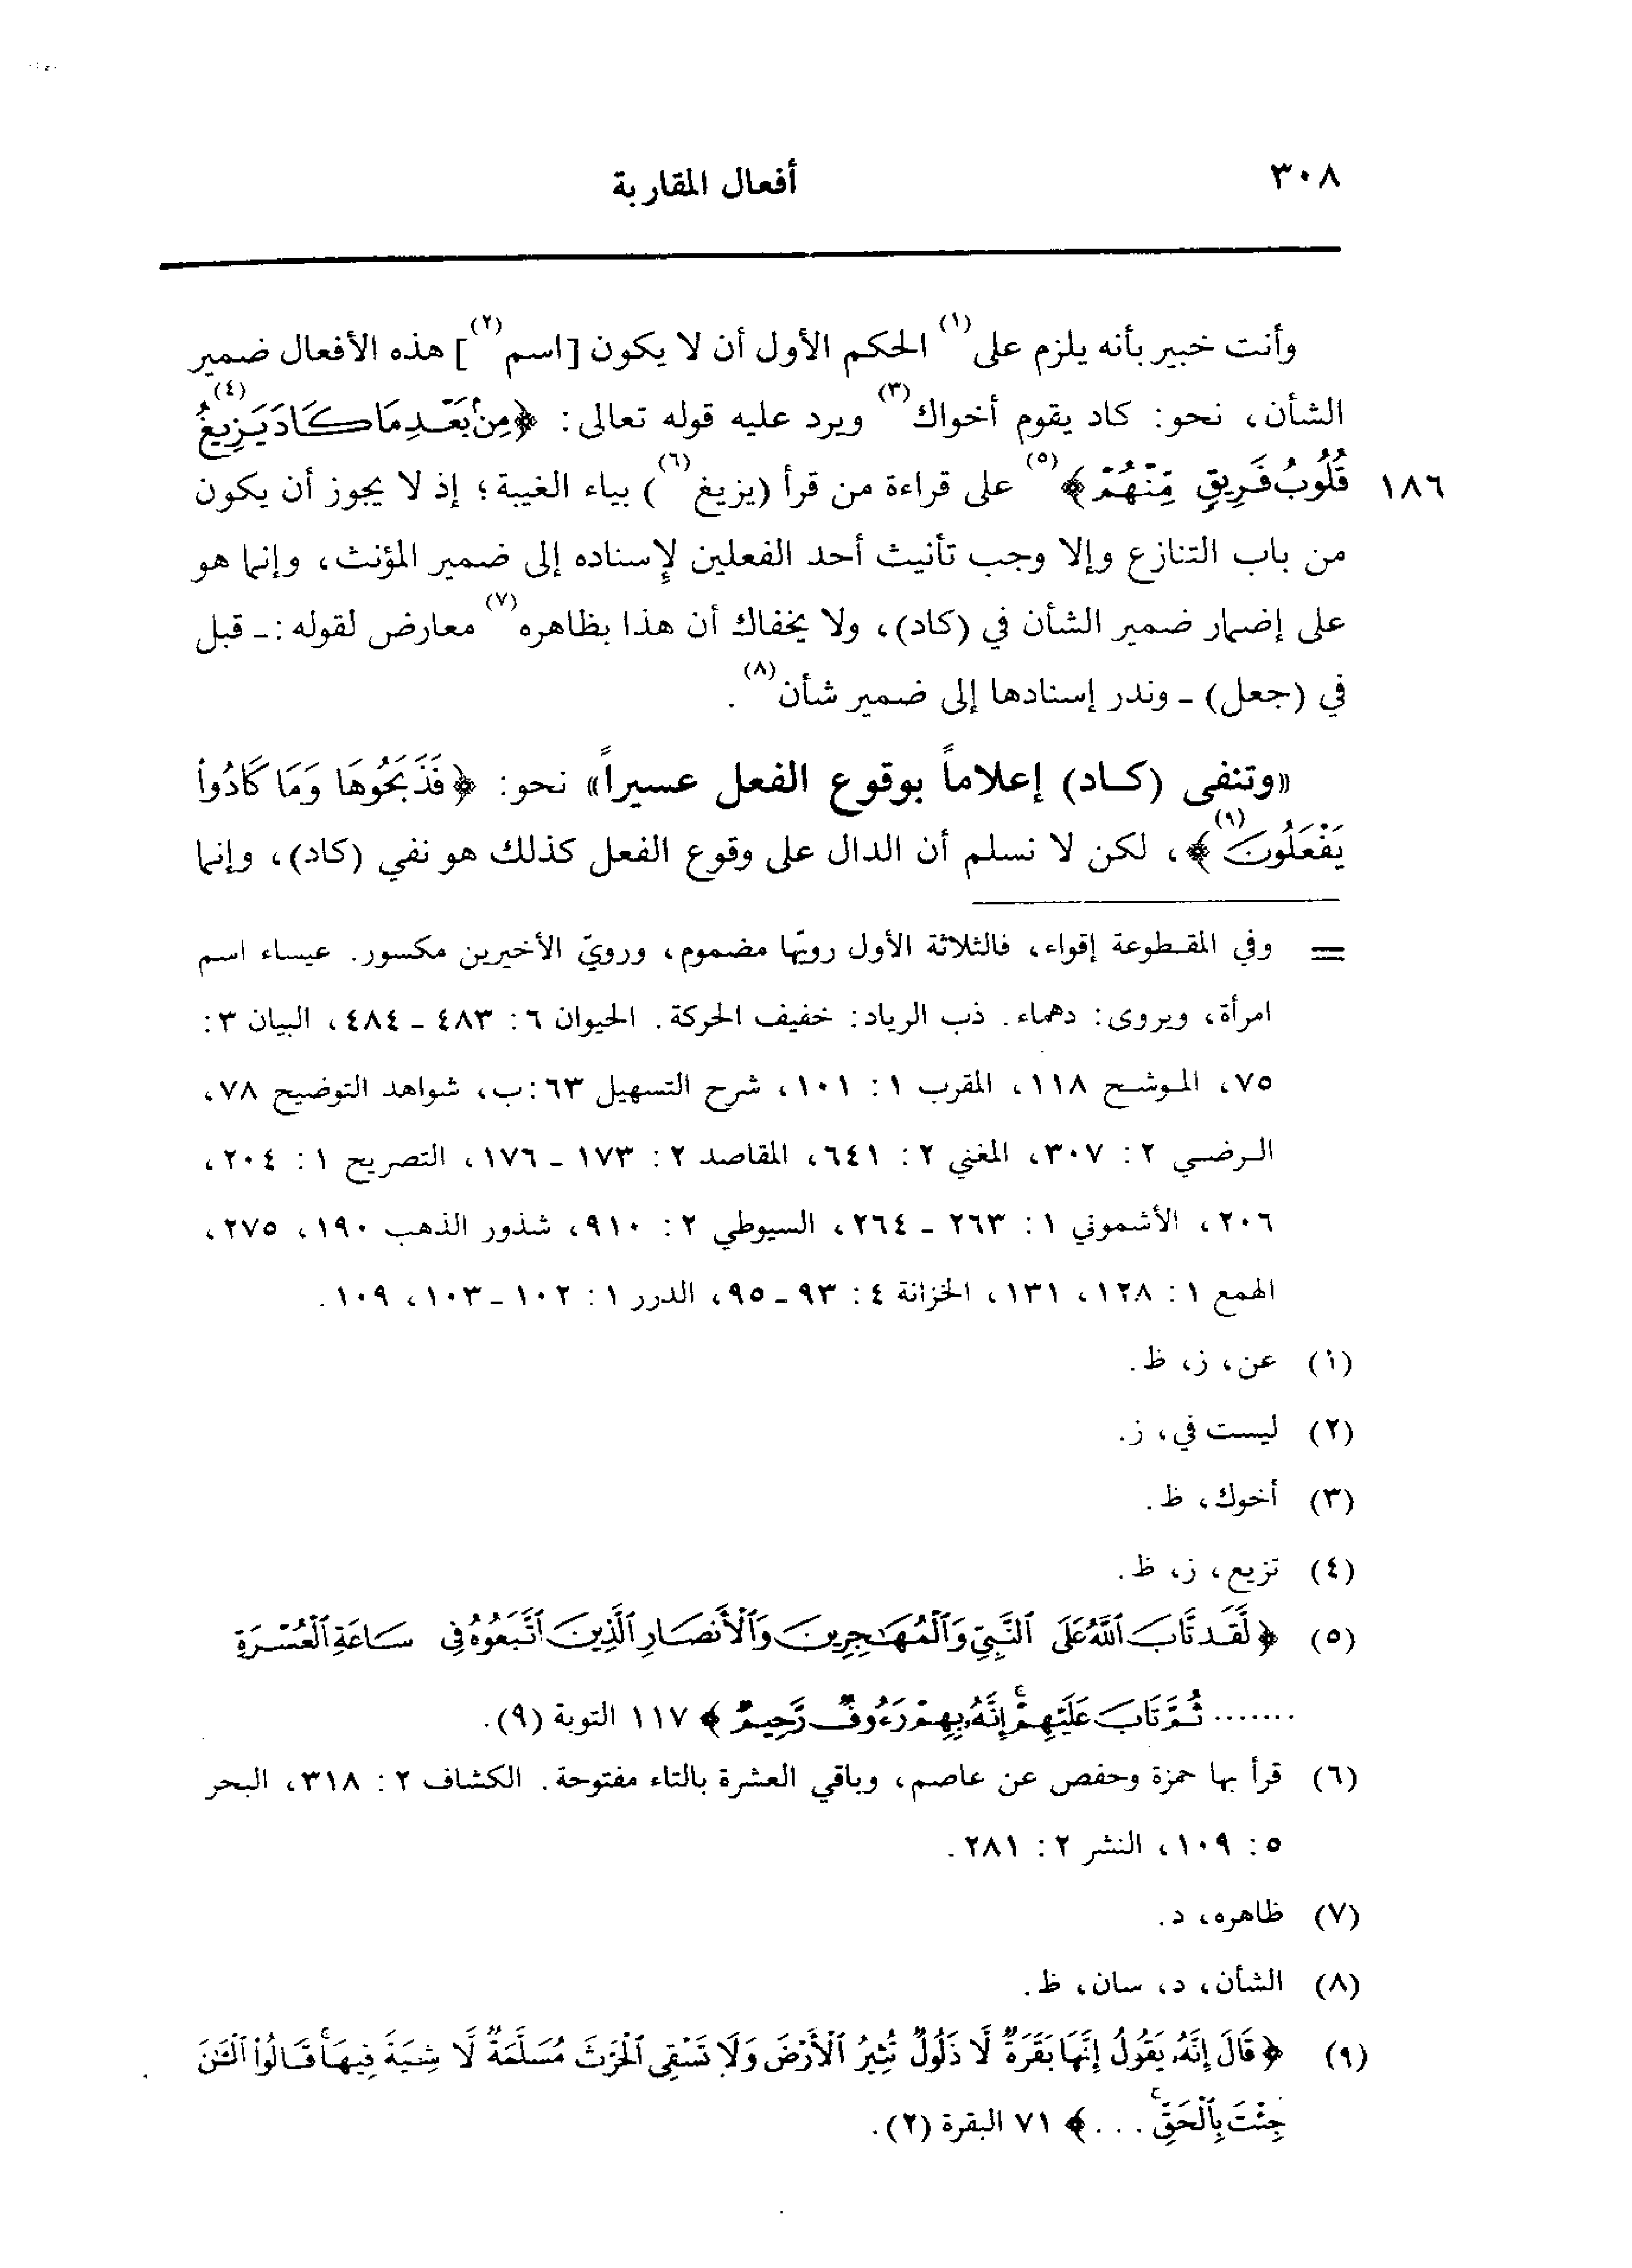 ٣٠٨ أفعال المقاربة
وأنت خبير بأنه يلزم على(١) الحكم الأول أن لا يكون [اسم(٢)] هذه الأفعال ضمير
الشأن، نحو: كاد يقوم أخواك(٣) ويرد عليه قوله تعالى: ﴿مِنۢ بَعْدِ مَا كَادَ يَزِيغُ(٤)
١٨٦ قُلُوبُ فَرِيقٍ مِّنْهُمْ﴾(٥) على قراءة من قرأ (يزيغ(٦)) بياء الغيبة؛ إذ لا يجوز أن يكون
من باب التنازع وإلا وجب تأنيث أحد الفعلين لإسناده إلى ضمير المؤنث، وإنما هو
على إضمار ضمير الشأن في (كاد)، ولا يخفاك أن هذا بظاهره(٧) معارض لقوله: ـ قبل
في (جعل) ـ وندر إسنادها إلى ضمير شأن(٨).
«وتنفى (كاد) إعلاماً بوقوع الفعل عسيراً» نحو: ﴿فَذَبَحُوهَا وَمَا كَادُوا۟
يَفْعَلُونَ(٩)﴾، لكن لا نسلم أن الدال على وقوع الفعل كذلك هو نفي (كاد)، وإنما
= وفي المقطوعة إقواء، فالثلاثة الأول رويّها مضموم، ورويّ الأخيرين مكسور. عيساء اسم
امرأة، ويروى: دهماء. ذب الرياد: خفيف الحركة. الحيوان ٦: ٤٨٣ ـ ٤٨٤، البيان ٣:
٧٥، الموشح ١١٨، المقرب ١: ١٠١، شرح التسهيل ٦٣:ب، شواهد التوضيح ٧٨،
الرضي ٢: ٣٠٧، المغني ٢: ٦٤١، المقاصد ٢: ١٧٣ ـ ١٧٦، التصريح ١: ٢٠٤،
٢٠٦، الأشموني ١: ٢٦٣ ـ ٢٦٤، السيوطي ٢: ٩١٠، شذور الذهب ١٩٠، ٢٧٥،
الهمع ١: ١٢٨، ١٣١، الخزانة ٤: ٩٣ ـ ٩٥، الدرر ١: ١٠٢ ـ ١٠٣، ١٠٩.
(١) عن، ز، ظ.
(٢) ليست في، ز.
(٣) أخوك، ظ.
(٤) تزيع، ز، ظ.
(٥) ﴿لَّقَد تَّابَ ٱللَّهُ عَلَى ٱلنَّبِيِّ وَٱلْمُهَٰجِرِينَ وَٱلْأَنصَارِ ٱلَّذِينَ ٱتَّبَعُوهُ فِى سَاعَةِ ٱلْعُسْرَةِ
....... ثُمَّ تَابَ عَلَيْهِمْ ۚ إِنَّهُۥ بِهِمْ رَءُوفٌ رَّحِيمٌ﴾ ١١٧ التوبة (٩).
(٦) قرأ بها حمزة وحفص عن عاصم، وباقي العشرة بالتاء مفتوحة. الكشاف ٢: ٣١٨، البحر
٥: ١٠٩، النشر ٢: ٢٨١.
(٧) ظاهره، د.
(٨) الشأن، د، سان، ظ.
(٩) ﴿قَالَ إِنَّهُۥ يَقُولُ إِنَّهَا بَقَرَةٌ لَّا ذَلُولٌ تُثِيرُ ٱلْأَرْضَ وَلَا تَسْقِى ٱلْحَرْثَ مُسَلَّمَةٌ لَّا شِيَةَ فِيهَا ۚ قَالُوا۟ ٱلْـَٰٔنَ
جِئْتَ بِٱلْحَقِّ ۚ ...﴾ ٧١ البقرة (٢).